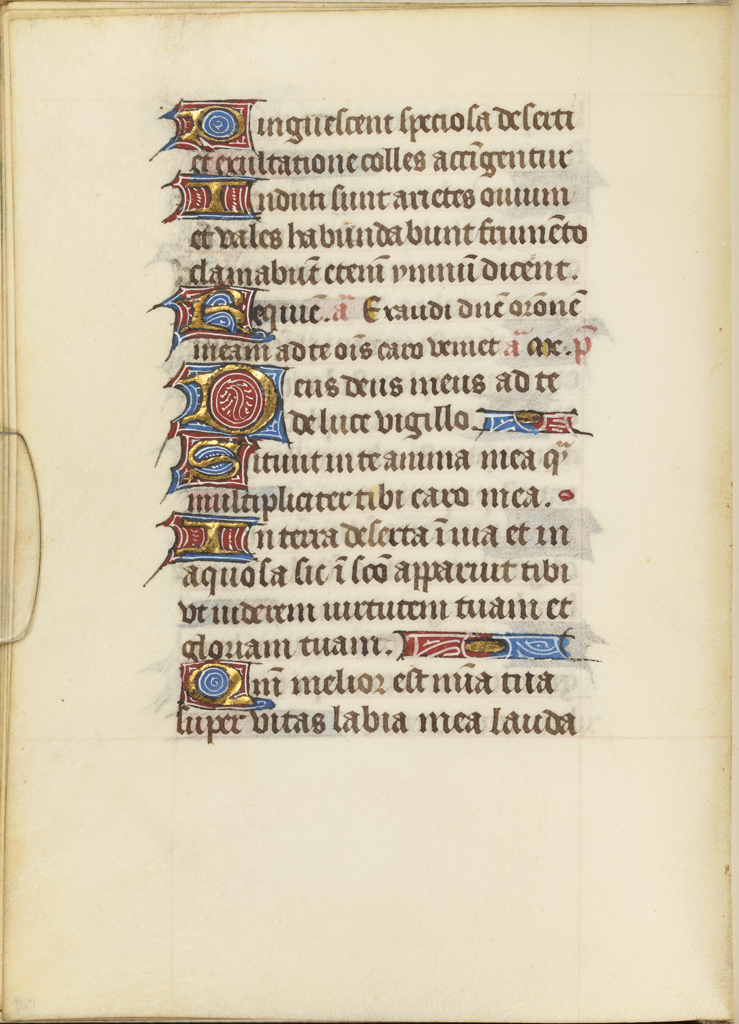 Pinguescent speciosa deserti
et exultatione colles accĩgentur
Induti sunt arietes ouium
et vales habundabunt frumẽto
clamabũt etenĩ ymnũ dicent.
Requiẽ. ã Exaudi dñe orõnẽ
meam ad te oĩs caro veniet ã ps
Deus deus meus ad te
de luce vigillo.
Sitiuit in te anima mea qͣ
multipliciter tibi caro mea.
In terra deserta ĩuia et in
aquosa sic ĩ scõ apparuit tibi
vt uiderem uirtutem tuam et
gloriam tuam.
Qm̃ melior est mĩa tua
super vitas labia mea lauda